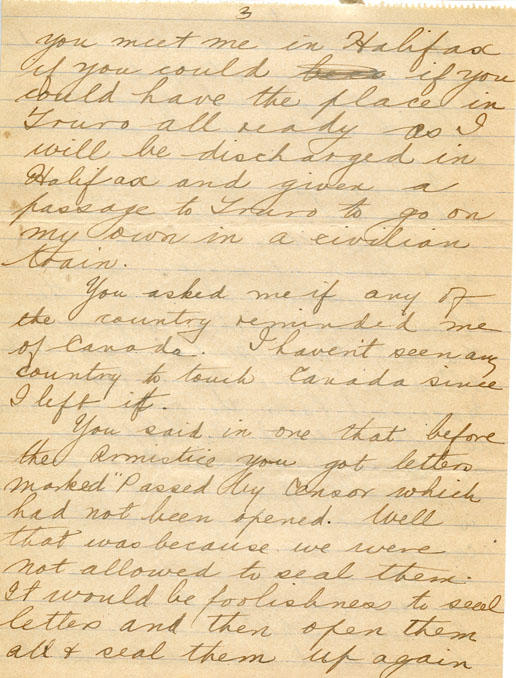 3
you meet me in Halifax
if you could if you
could have the place in
Truro all ready as I
will be discharged in
Halifax and given a
passage to Truro to go on
my own in a civilian
train.
You asked me if any of
the country reminded me
of Canada. I havent seen any
country to touch Canada since
I left it.
You said in one that before
the Armistice you got letters
marked "Passed by Censor which
had not been opened. Well
that was because we were
not allowed to seal them.
It would be foolishness to seal
letters and then open them
all & seal them up again